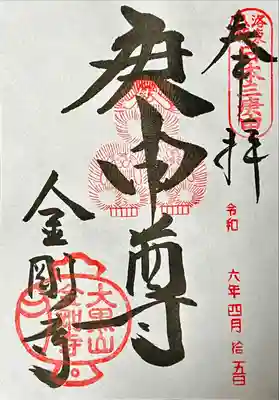 奉拝
日本三庚申
令和 六年四月拾五日
庚申尊
金剛寺
大黒山
金剛寺